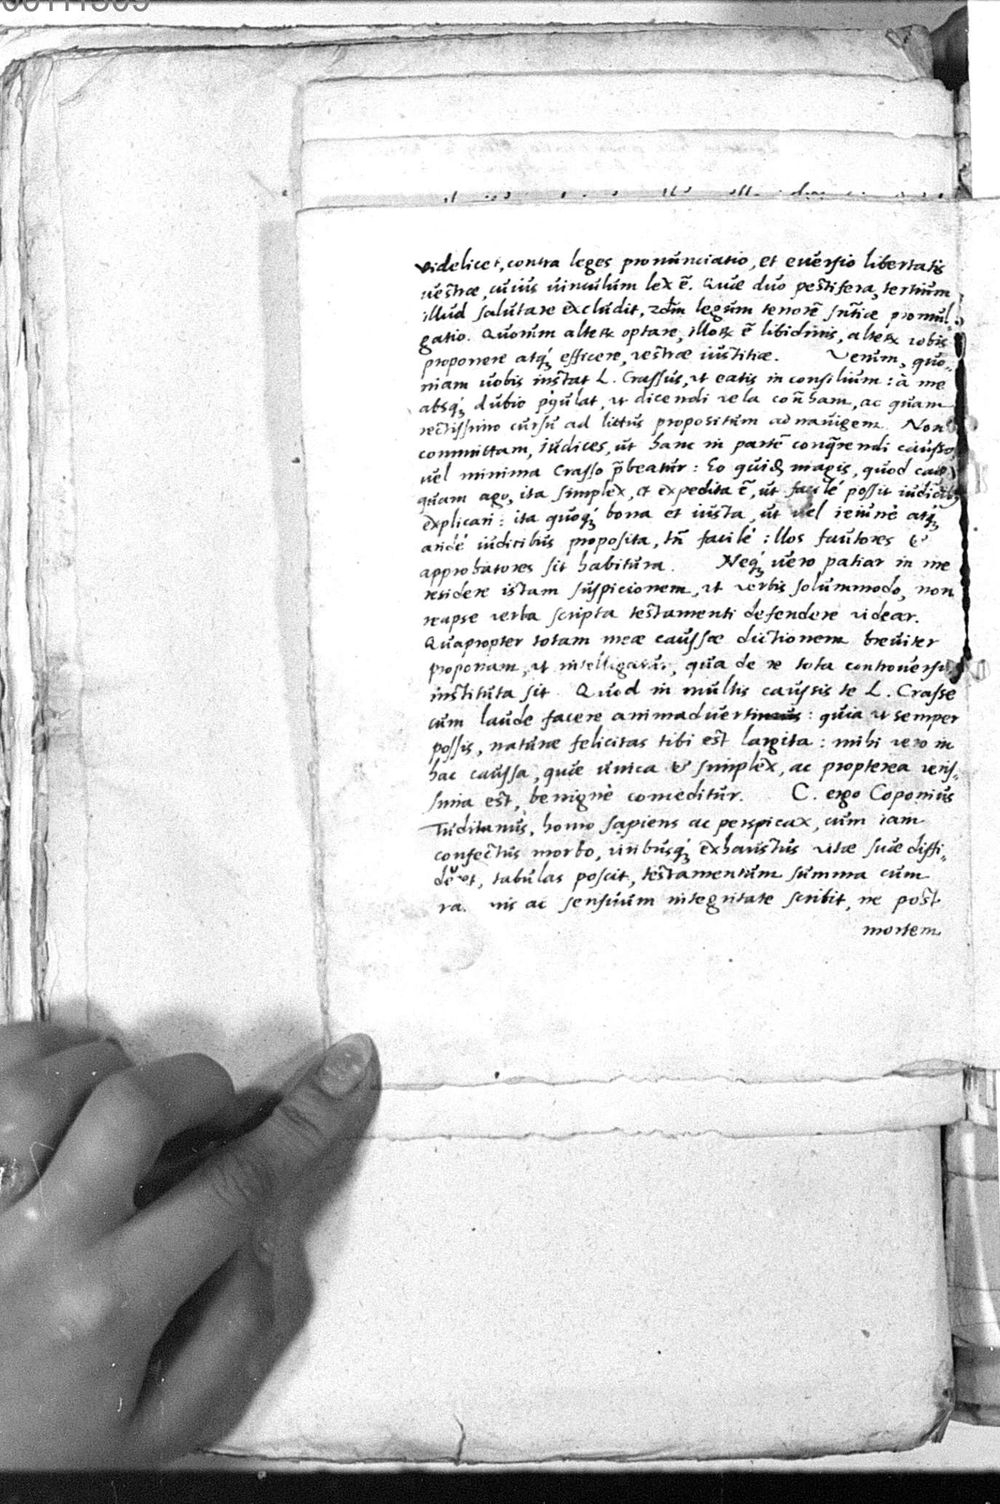 videlicet, contra leges pronunciatio, et eversio libertatis
vestræ, cuius vinculum lex ē. Quæ duo pestifera, tertium
illud salutare excludit, legum tenorē promul-
gatio. Quorum optare, ē libidinis, vobis
proponere atq; efficere, vestræ iustitiæ. Verum, quo-
niam vobis instat L. Crassus, ut eatis in consilium: à me
absq; dubio ut dicendi vela ac quam
rectissimo cursu ad littus propositum adnavigem. Non
committam, iudices, ut hanc in partē conq̄rendi
vel minima Crasso p̄beatur: Eo magis, quod
quam ago, ita simplex, et expedita ē, ut facilè possit
explicari: ita quoq; bona et iusta, ut vel ieiunè atq;
iudicibus proposita, tñ facilè illos fautores &
approbatores sit habitura. Neq; vero patiar in me
residere istam suspicionem, ut verbis solummodo, non
reapse verba scripta testamenti defendere videar.
Quapropter totam meæ caussæ dictionem breviter
proponam, ut intelligatur, qua de re tota controversia
instituta sit. Quod in multis caussis te L. Crasse
cum laude facere : quia ut semper
possis, naturæ felicitas tibi est largita: mihi vero in
hac caussa, quæ unica & simplex, ac propterea veris-
sima est, benignè conceditur. C. ergo Coponius
Tuditanus, homo sapiens ac perspicax, cum iam
confectus morbo, viribusq; exhaustus vitæ suæ diffi-
deret, tabulas poscit, testamentum summa cum
ac sensuum integritate scribit, ne post
mortem